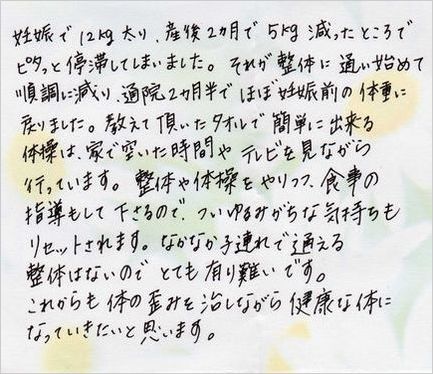 妊娠で12kg太り、産後2ヵ月で5kg減ったところで
ピタッと停滞してしまいました。それが整体に通い始めて
順調に減り、通院2ヵ月半でほぼ妊娠前の体重に
戻りました。教えて頂いたタオルで簡単に出来る
体操は、家で空いた時間やテレビを見ながら
行っています。整体や体操をやりつつ、食事の
指導もして下さるので、ついゆるみがちな気持ちも
リセットされます。なかなか子連れで通える
整体はないのでとても有り難いです。
これからも体の歪みを治しながら健康な体に
なっていきたいと思います。